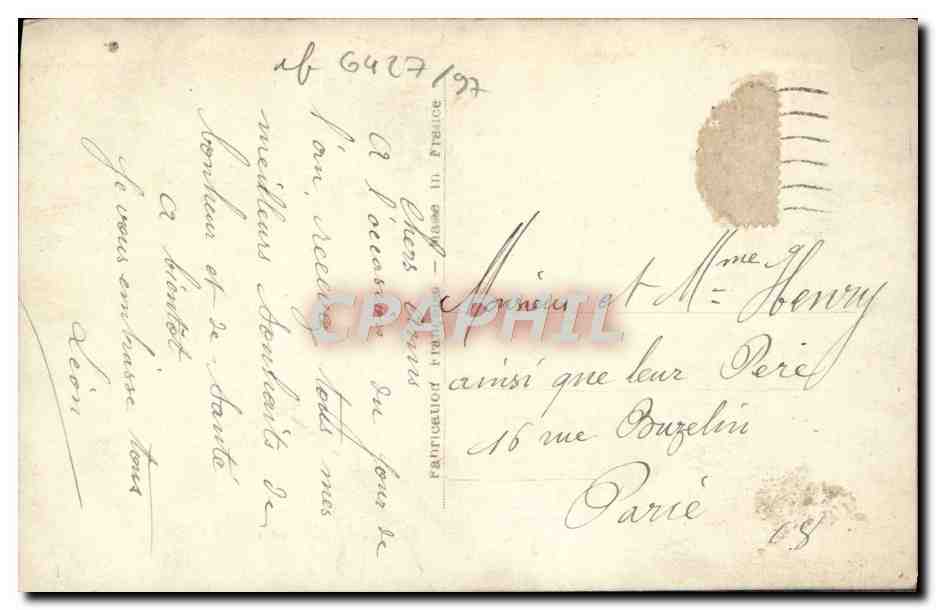 6427/97
Chers Amis
A l'occasion du jour de
l'an, recevez tous mes
meilleurs souhaits de
bonheur et de santé
A biéntot
Je vous embrasse tous
Léon
Fabrication Française - Made in France
Monsieur et Mme Henry
ainsi que leur Pere
16 rue Buzelin
Paris
CPAPHIL